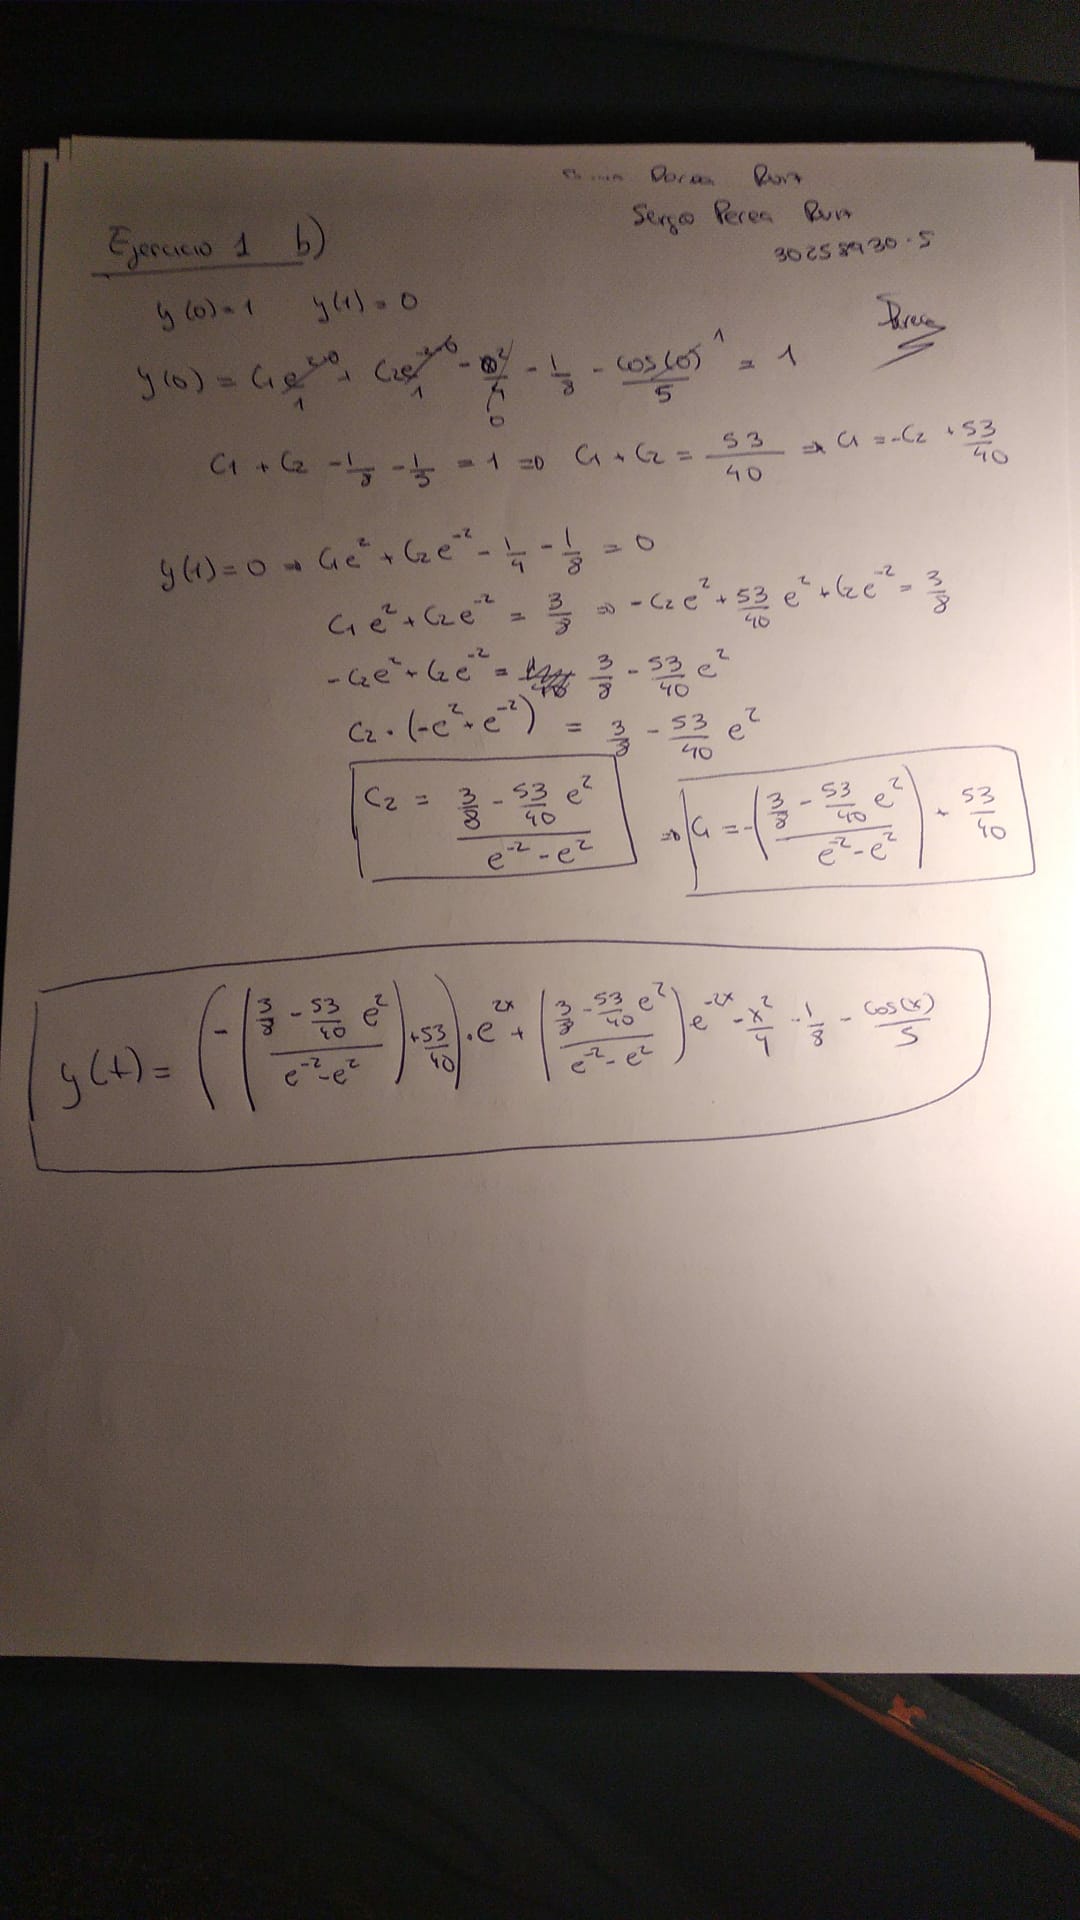 Perea Ruiz
Sergio Perea Ruiz
30258930-S
Ejercicio 1 b)
Perea
y(0)=1 y(1)=0
y(0) = C1 e^2·0 + C2 e^-2·0 - 0^2/4 - 1/8 - cos(0)/5 = 1
1 1 0 1
C1 + C2 - 1/8 - 1/5 = 1 => C1 + C2 = 53/40 => C1 = -C2 + 53/40
y(1)=0 => C1 e^2 + C2 e^-2 - 1/4 - 1/8 = 0
C1 e^2 + C2 e^-2 = 3/8 => -C2 e^2 + 53/40 e^2 + C2 e^-2 = 3/8
-C2 e^2 + C2 e^-2 = 3/8 - 53/40 e^2
C2 · (-e^2 + e^-2) = 3/8 - 53/40 e^2
C2 = (3/8 - 53/40 e^2)/(e^-2 - e^2) => C1 = -((3/8 - 53/40 e^2)/(e^-2 - e^2)) + 53/40
y(t) = (-((3/8 - 53/40 e^2)/(e^-2 - e^2)) + 53/40) · e^2x + ((3/8 - 53/40 e^2)/(e^-2 - e^2)) e^-2x - x^2/4 - 1/8 - cos(x)/5